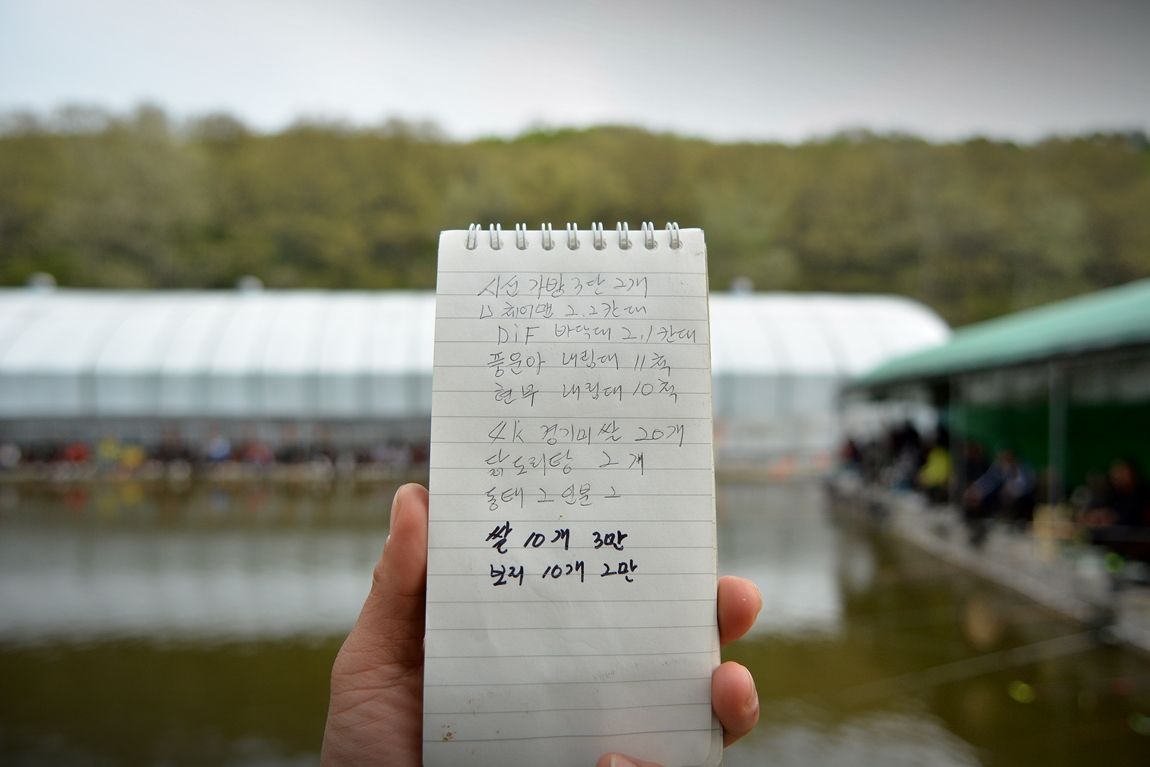 시선 가방 3단 2개
체어맨 2.2칸대
DIF 바닥대 2.1칸대
풍운아 내림대 11척
현무 내림대 10척
4k 경기미 쌀 20개
닭도리탕 2개
동태 2인분 2
쌀 10개 3만
보리 10개 2만